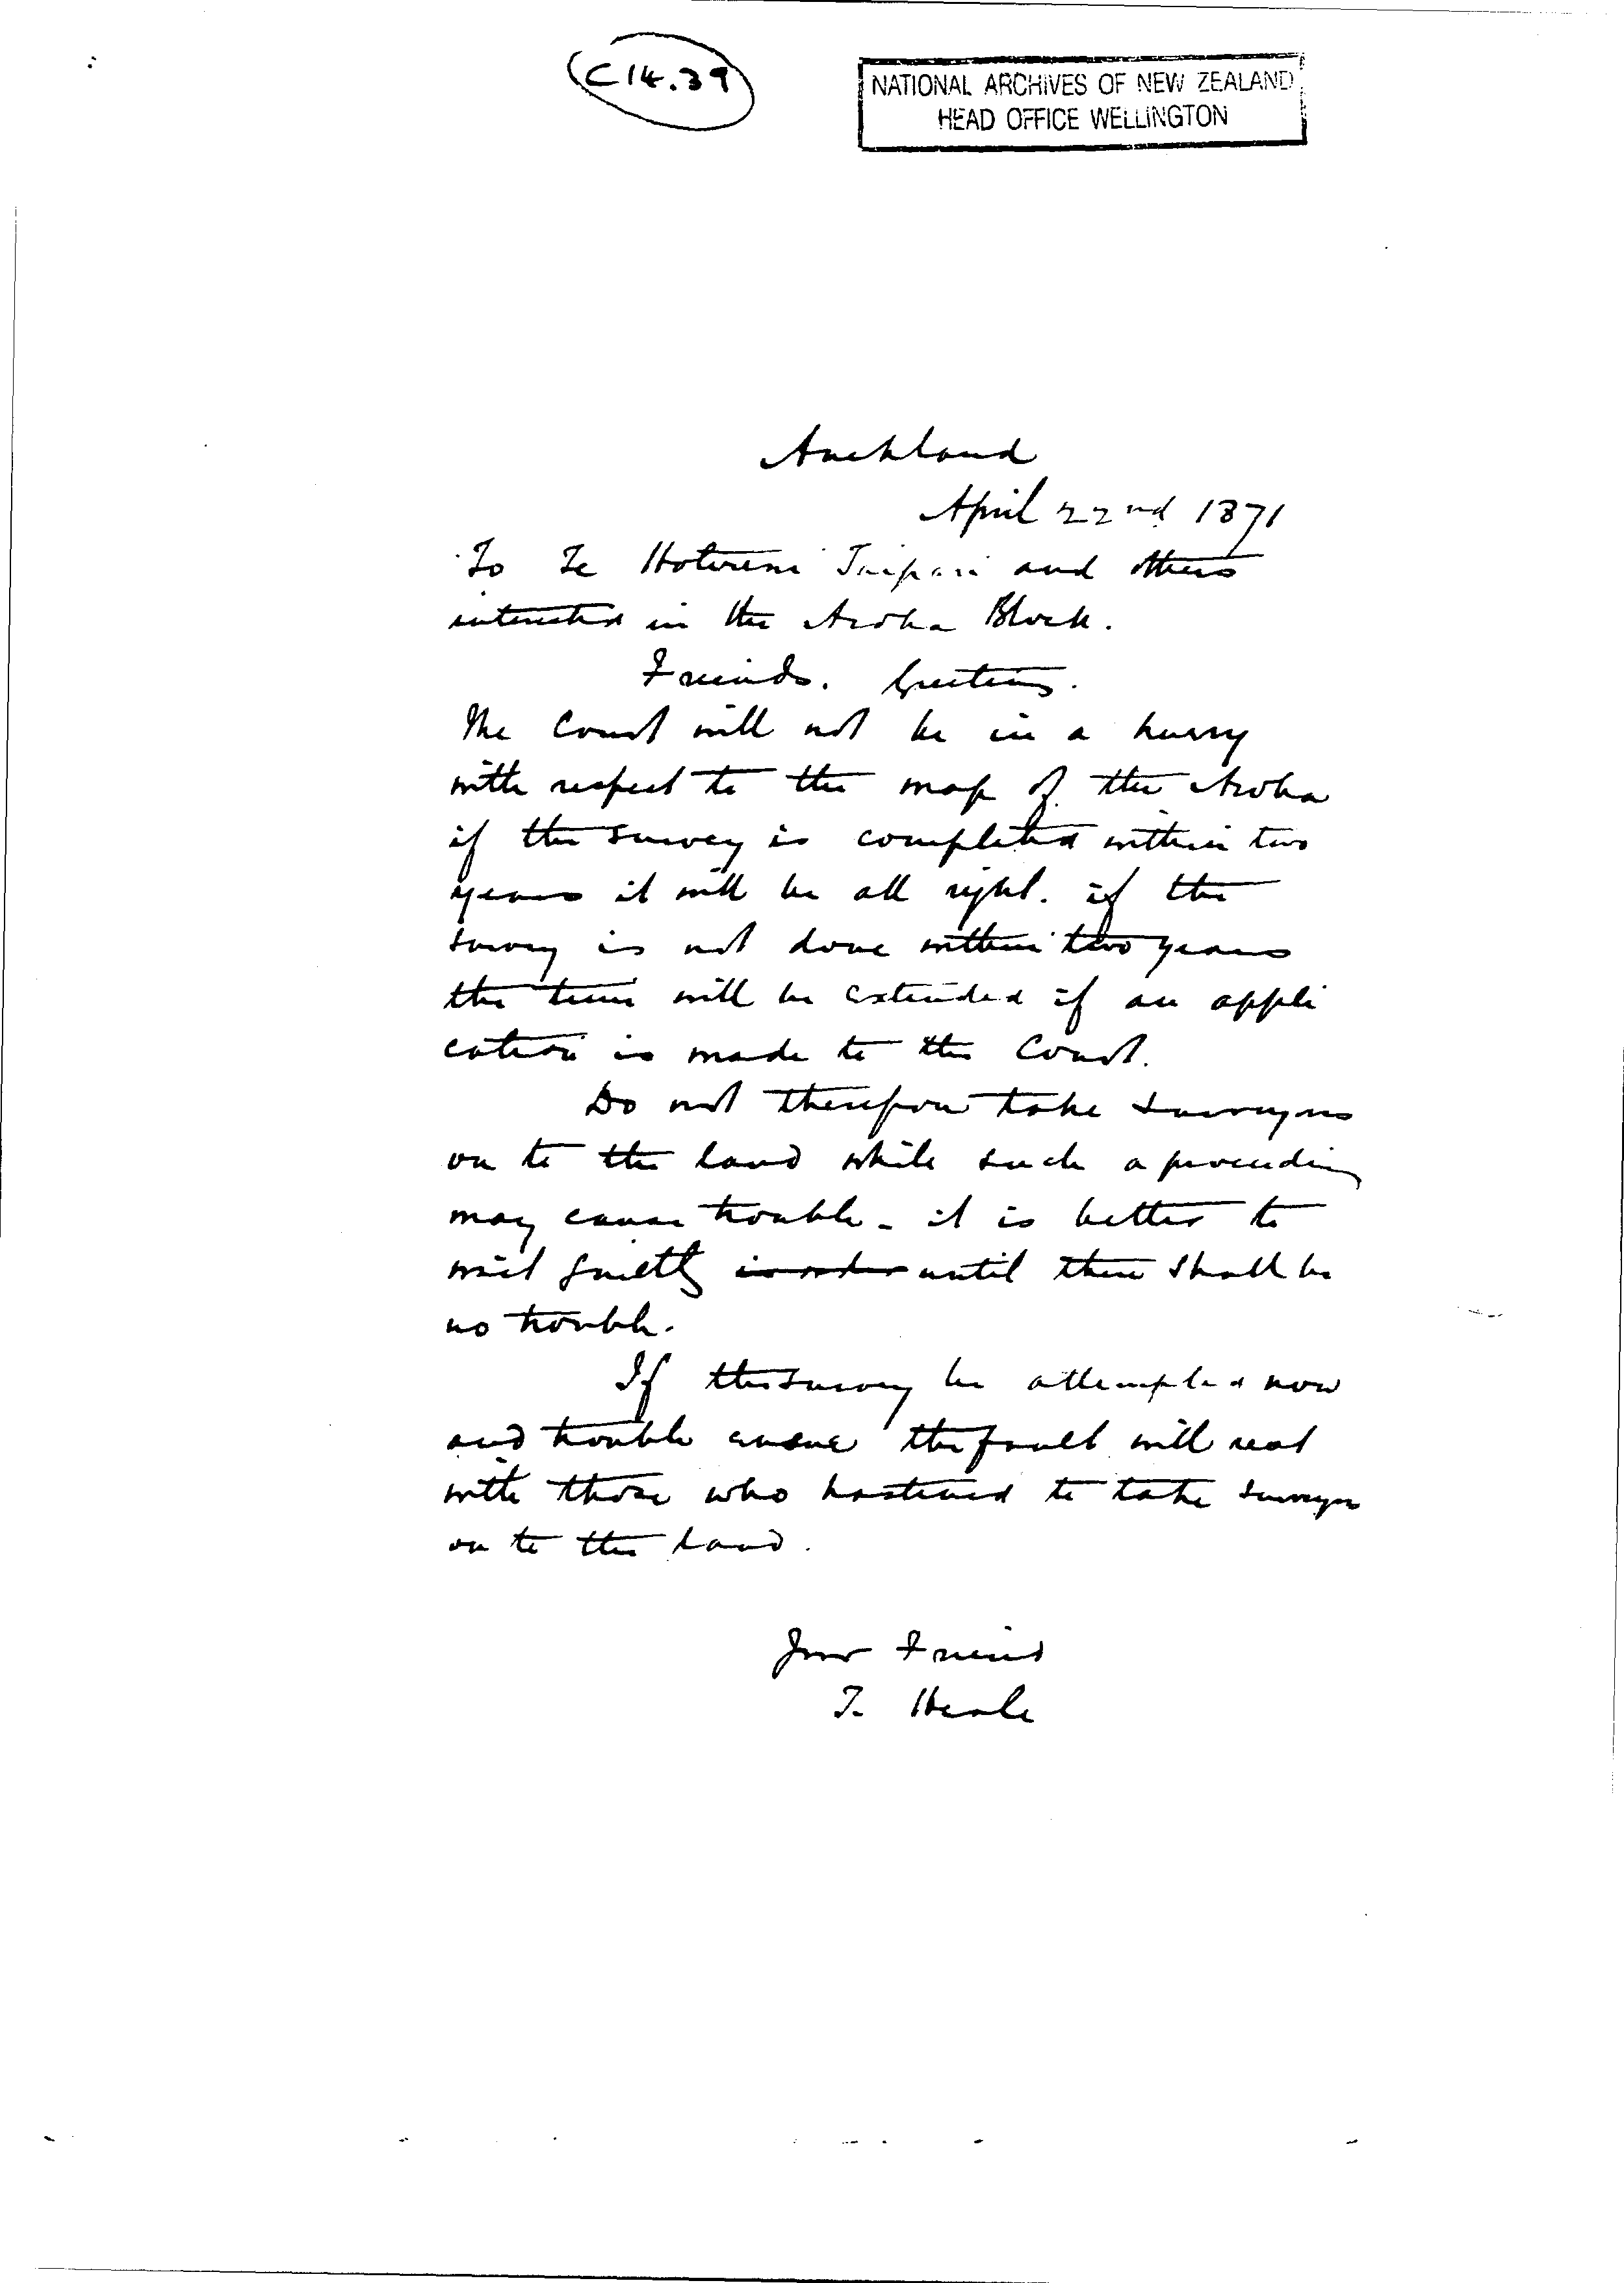 C14.39
NATIONAL ARCHIVES OF NEW ZEALAND
HEAD OFFICE WELLINGTON
Auckland
April 22nd 1871
To Te Hotereni Taipari and others
interested in the Aroha Block.
Friends. Greeting.
The Court will not be in a hurry
with respect to the map of the Aroha
if the survey is completed within two
years it will be all right. if the
survey is not done within two years
the time will be extended if an appli
cation is made to the Court.
Do not therefore take surveyors
on to the land while such a proceeding
may cause trouble - it is better to
wait quietly in order until there shall be
no trouble.
If the survey be attempted now
and trouble ensue the fault will rest
with those who hastened to take surveyors
on to the land.
Your Friend
T. Heale